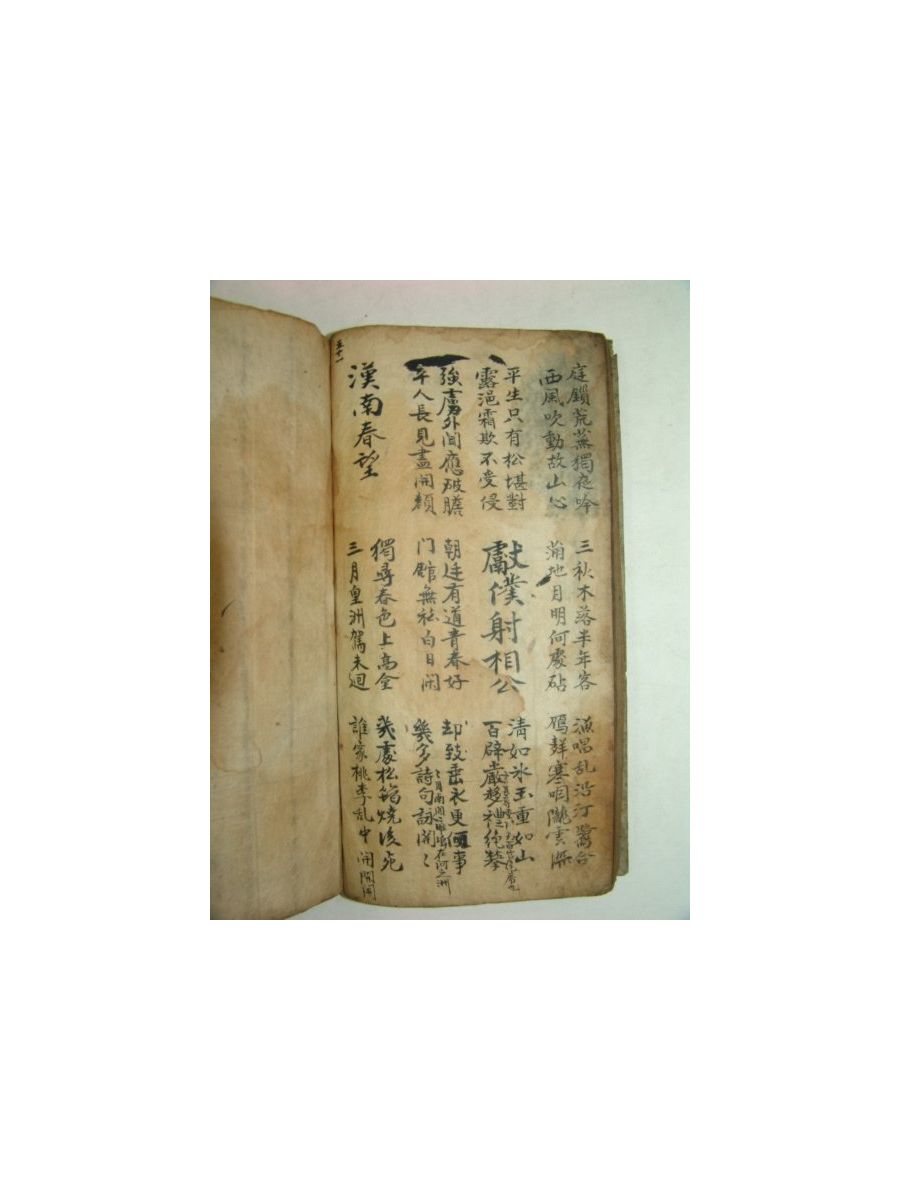 庭鎖荒蕪獨夜吟
西風吹動故山心
三秋木落半年客
滿地月明何處砧
漁唱乱沿汀鷺合
鴈聲寒咽隴雲深
平生只有松堪對
露浥霜欺不受侵
獻僕射相公
清如氷玉重如山
百辟嚴趍禮絶攀
強虜外聞應破膽
平人長見盡開顏
朝廷有道青春好
门館無私白日閑
却致垂衣更何事
幾多詩句詠關〻
在河之洲
漢南春望
獨尋春色上高台
三月皇洲駕未迴
幾處松筠燒後死
誰家桃李乱中開
五十一